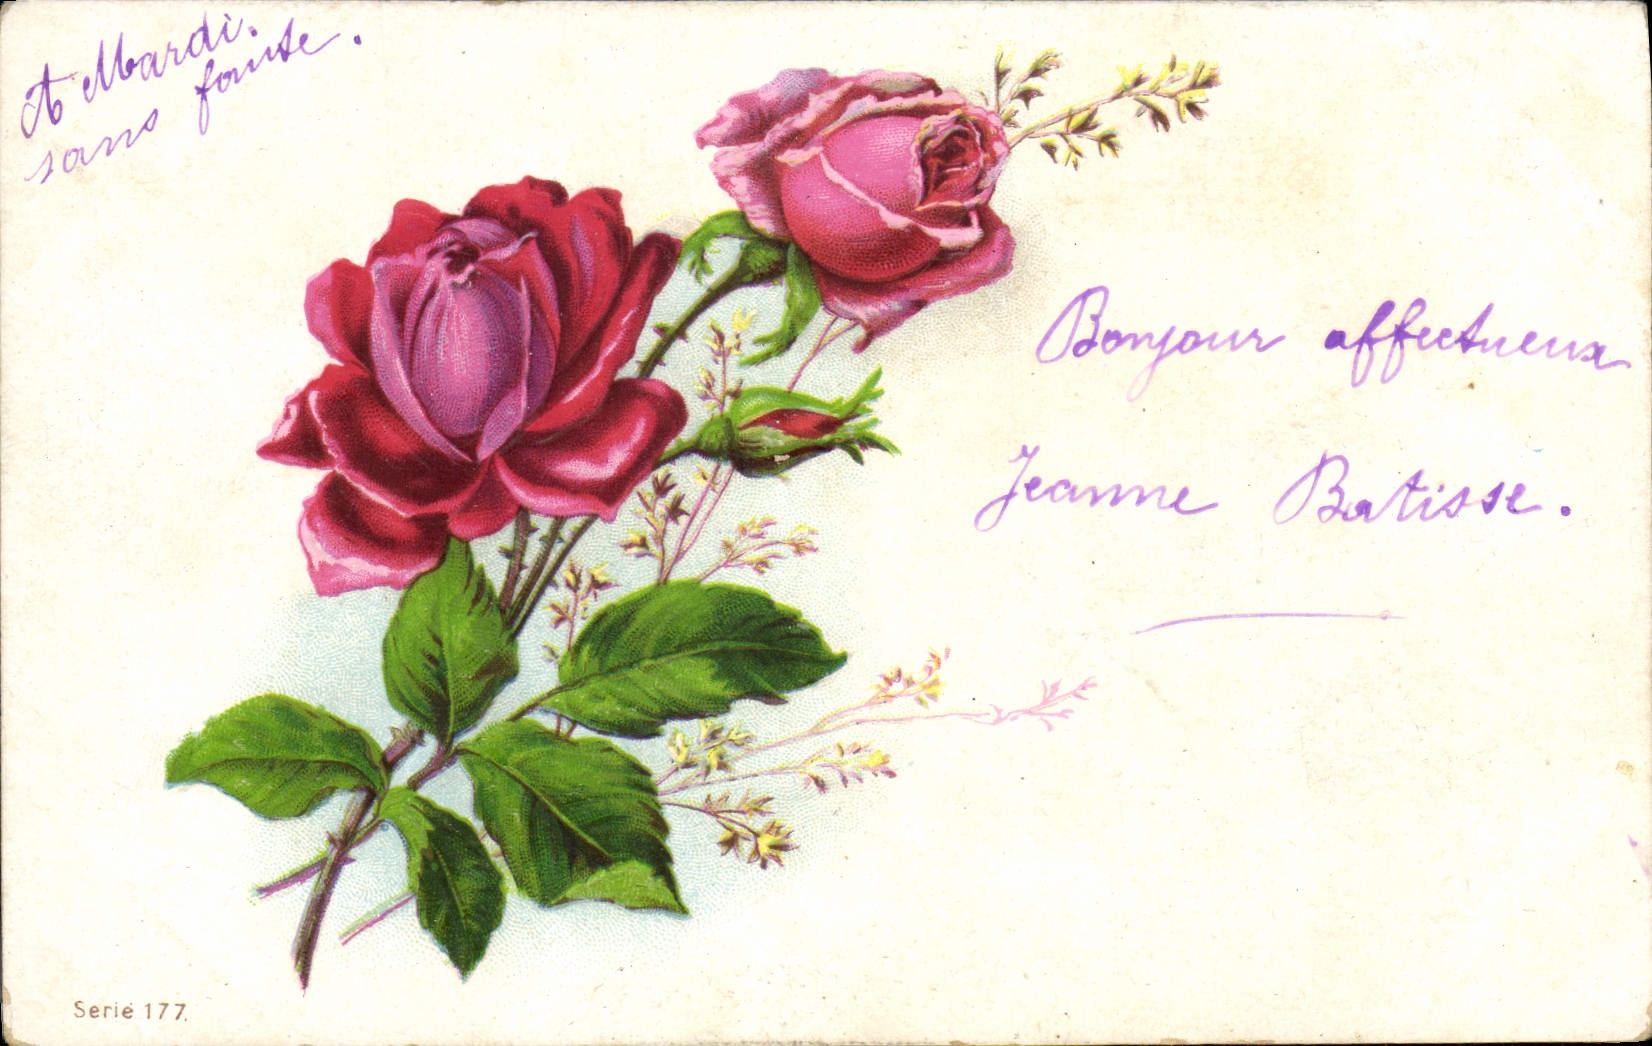 A Mardi.
sans faute.
Bonjour affectueux
Jeanne Batisse.
Serie 177.